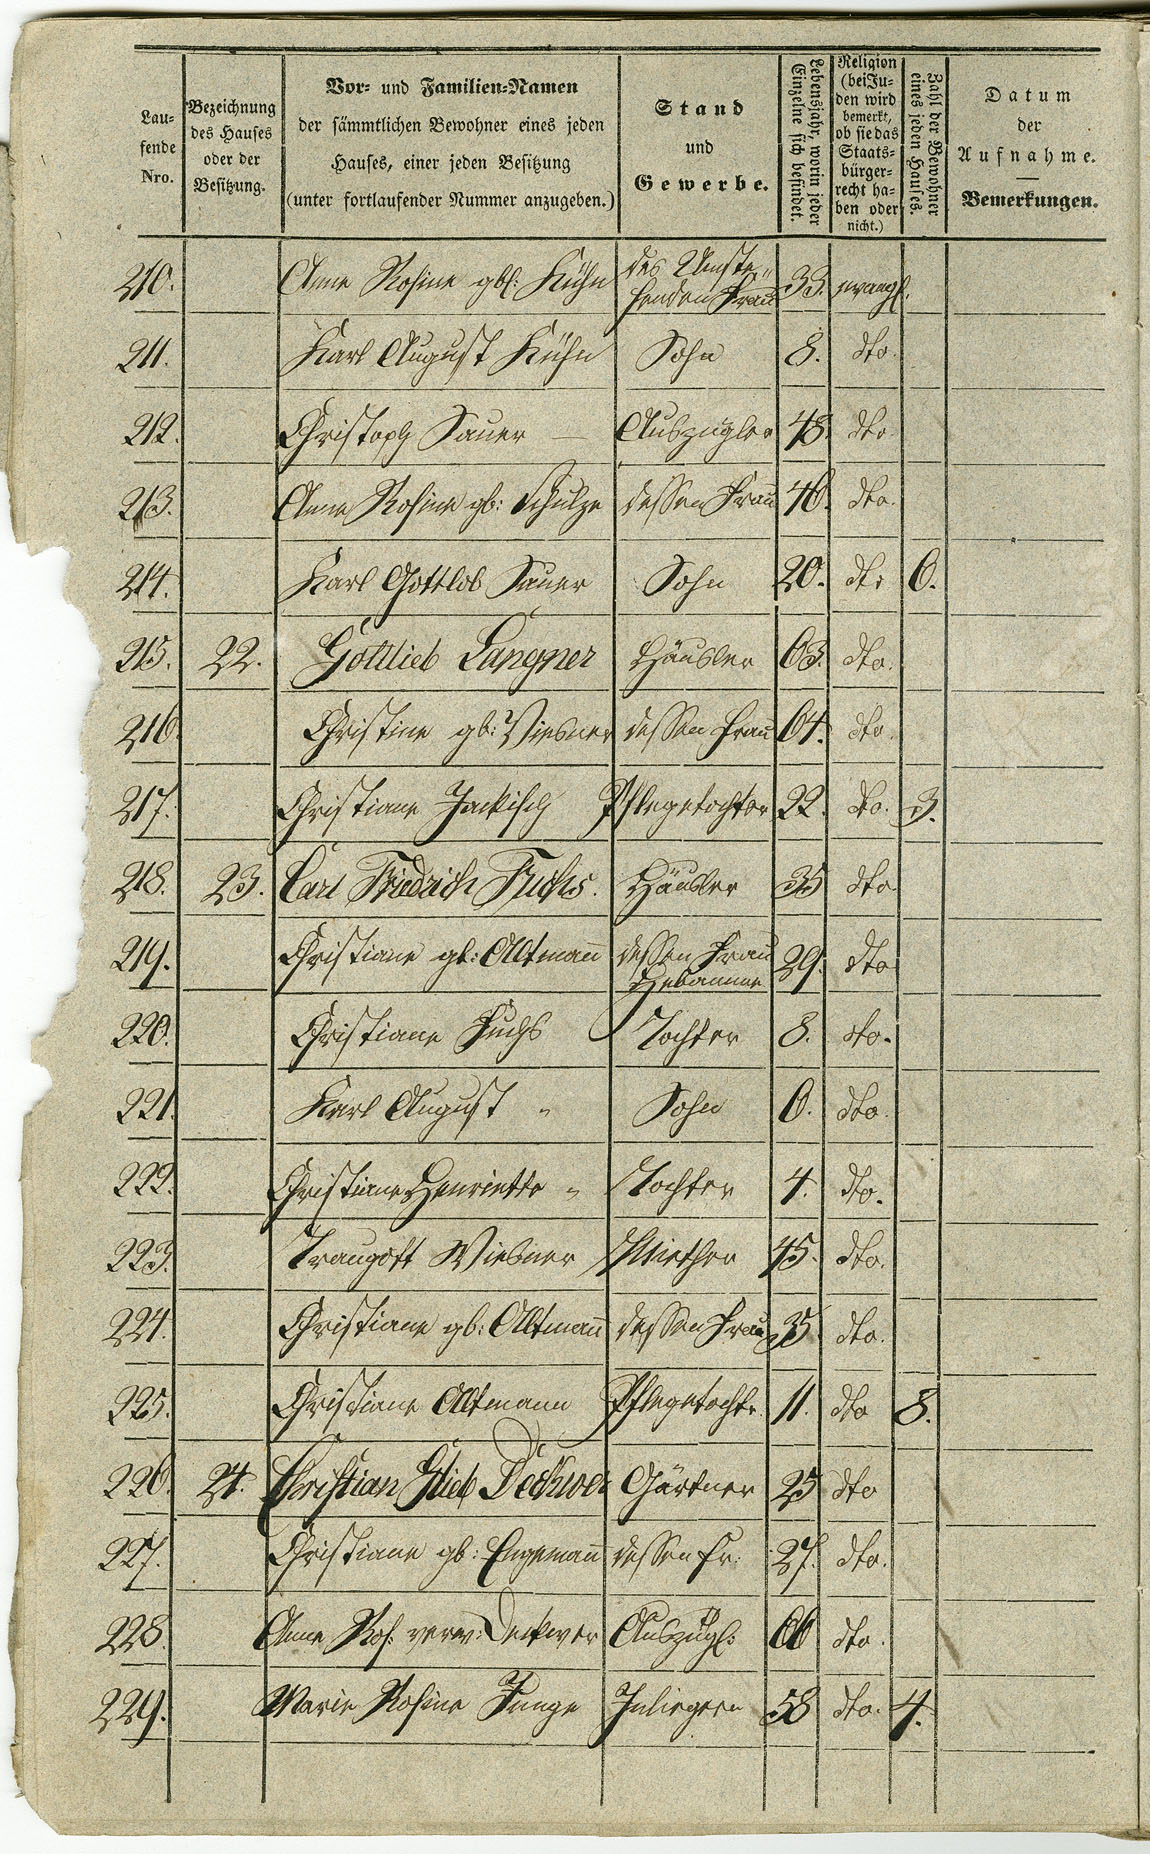 Laufende Nro.
Bezeichnung des Hauses oder der Besitzung.
Vor- und Familien-Namen der sämmtlichen Bewohner eines jeden Hauses, einer jeden Besitzung (unter fortlaufender Nummer anzugeben.)
Stand und Gewerbe.
Lebensjahr, worin jeder Einzelne sich befindet.
Religion (bei Juden wird bemerkt, ob sie das Staatsbürgerrecht haben oder nicht.)
Zahl der Bewohner eines jeden Hauses.
Datum der Aufnahme. — Bemerkungen.
210. Anne Rosine gb: Kühn des Umstehenden Frau 33. evangl.
211. Karl August Kühn Sohn 8. dto.
212. Christoph Sauer — Auszügler 48. dto.
213. Anne Rosine gb: Schulze dessen Frau 46. dto.
214. Karl Gottlob Sauer Sohn 20. dto 6.
215. 22. Gottlieb Langner Häusler 63. dto.
216. Christine gb: Wiesner dessen Frau 64. dto.
217. Christiane Jackisch Pflegetochter 22. dto. 3.
218. 23. Carl Friedrich Fuchs. Häusler 35 dto
219. Christiane gb: Altmann dessen Frau Hebamme 29. dto
220. Christiane Fuchs Tochter 8. dto.
221. Karl August " Sohn 6. dto.
222. Christiane Henriette " Tochter 4. dto.
223. Traugott Wiesner Miether 45. dto.
224. Christiane gb: Altmann dessen Frau 35 dto.
225. Christiane Altmann Pflegetochtr. 11. dto 8.
226. 24. Christian Glieb Deckwer Gärtner 25 dto
227. Christiane gb: Engemann dessen Fr: 27. dto.
228. Anne Ros: verw: Deckwer Auszügl: 66 dto.
229. Marie Rosine Junge 58 dto. 4.